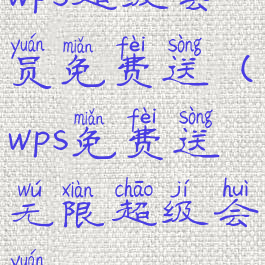 wps超级会
yuán miǎn fèi sòng
员免费送(
miǎn fèi sòng
wps免费送
wú xiàn chāo jí huì
无限超级会
yuán